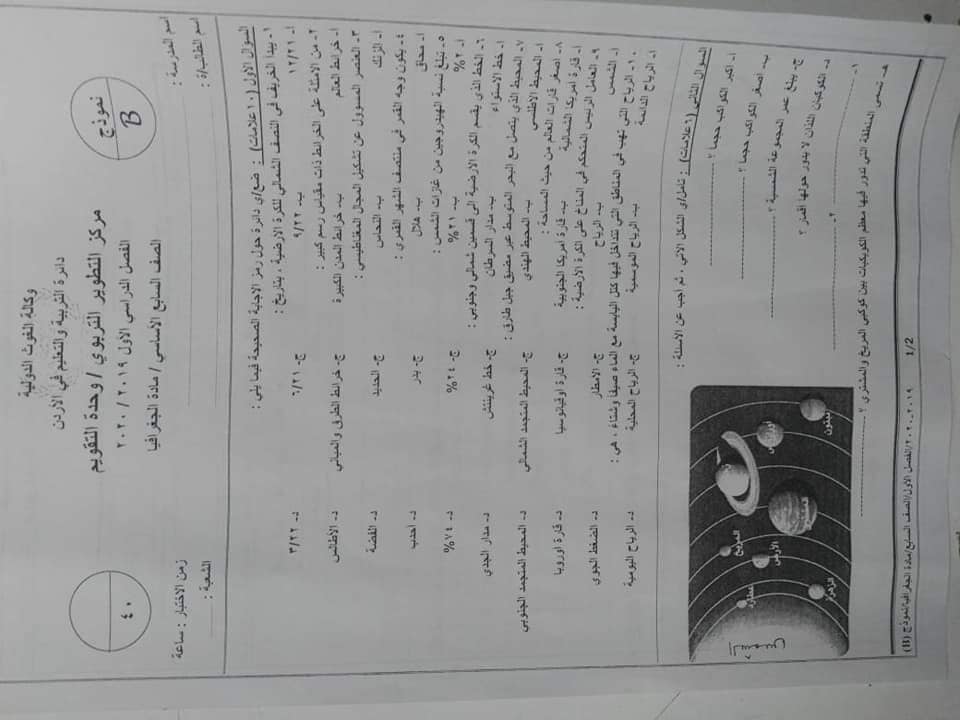 وكالة الغوث الدولية
دائرة التربية والتعليم في الأردن
مركز التطوير التربوي / وحدة التقويم
الفصل الدراسي الأول ٢٠١٩ / ٢٠٢٠
الصف السابع الأساسي / مادة الجغرافيا
نموذج B
٤٠
اسم الطالب/ة :
الشعبة :
اسم المدرسة :
زمن الاختبار : ساعة
السؤال الأول (١٠ علامات) : ضع/ي دائرة حول رمز الإجابة الصحيحة فيما يلي :
١- يبدأ الخريف في النصف الشمالي للكرة الأرضية ، بتاريخ :
أ- ١٢/٢١ ب- ٩/٢٢ ج- ٦/٢١ د- ٣/٢٢
٢- من الأمثلة على الخرائط ذات مقياس رسم كبير :
أ- خرائط العالم ب- خرائط المدن الكبيرة ج- خرائط الطرق والمباني د- الأطالس
٣- العنصر المسؤول عن تشكيل المجال المغناطيسي :
أ- الزنك ب- النحاس ج- الحديد د- الفضة
٤- يكون وجه القمر في منتصف الشهر القمري :
أ- محاق ب- هلال ج- بدر د- أحدب
٥- تبلغ نسبة الهيدروجين من غازات الشمس :
أ- ٢% ب- ٢١% ج- ٢٤% د- ٧٤%
٦- الخط الذي يقسم الكرة الأرضية الى قسمين شمالي وجنوبي :
أ- خط الاستواء ب- مدار السرطان ج- خط غرينتش د- مدار الجدي
٧- المحيط الذي يتصل مع البحر المتوسط عبر مضيق جبل طارق :
أ- المحيط الأطلسي ب- المحيط الهندي ج- المحيط المتجمد الشمالي د- المحيط المتجمد الجنوبي
٨- أصغر قارات العالم من حيث المساحة :
أ- قارة أمريكا الشمالية ب- قارة أمريكا الجنوبية ج- قارة أوقيانوسيا د- قارة أوروبا
٩- العامل الرئيس المتحكم في المناخ على الكرة الأرضية :
أ- الشمس ب- الرياح ج- الأمطار د- الضغط الجوي
١٠- الرياح التي تهب في المناطق التي تتداخل فيها كتل اليابسة مع الماء صيفا وشتاء ، هي :
أ- الرياح الدائمة ب- الرياح الموسمية ج- الرياح المحلية د- الرياح اليومية
السؤال الثاني (٦ علامات) : تأمل/ي الشكل الآتي ، ثم أجب عن الأسئلة :
أ- أكبر الكواكب حجما ؟
ب- أصغر الكواكب حجما ؟
ج- يبلغ عمر المجموعة الشمسية ؟
د- الكوكبان اللذان لا يدور حولها أقمار ؟
١- ٢-
هـ- تسمى المنطقة التي تدور فيها معظم الكويكبات بين كوكبي المريخ والمشتري ؟
عطارد
الزهرة
الأرض
المريخ
المشتري
نبتون
1/2
٢٠١٩-٢٠٢٠/الفصل الأول/الصف السابع/مادة الجغرافيا/نموذج (B)